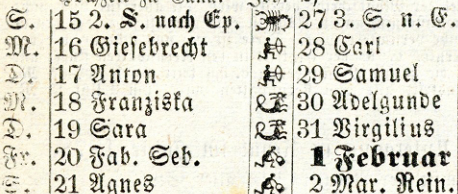 S. 15 2. S. nach Ep. 27 3. S. n. E.
M. 16 Giesebrecht 28 Carl
D. 17 Anton 29 Samuel
M. 18 Franziska 30 Adelgunde
D. 19 Sara 31 Virgilius
Fr. 20 Fab. Seb. 1 Februar
S. 21 Agnes 2 Mar. Rein.